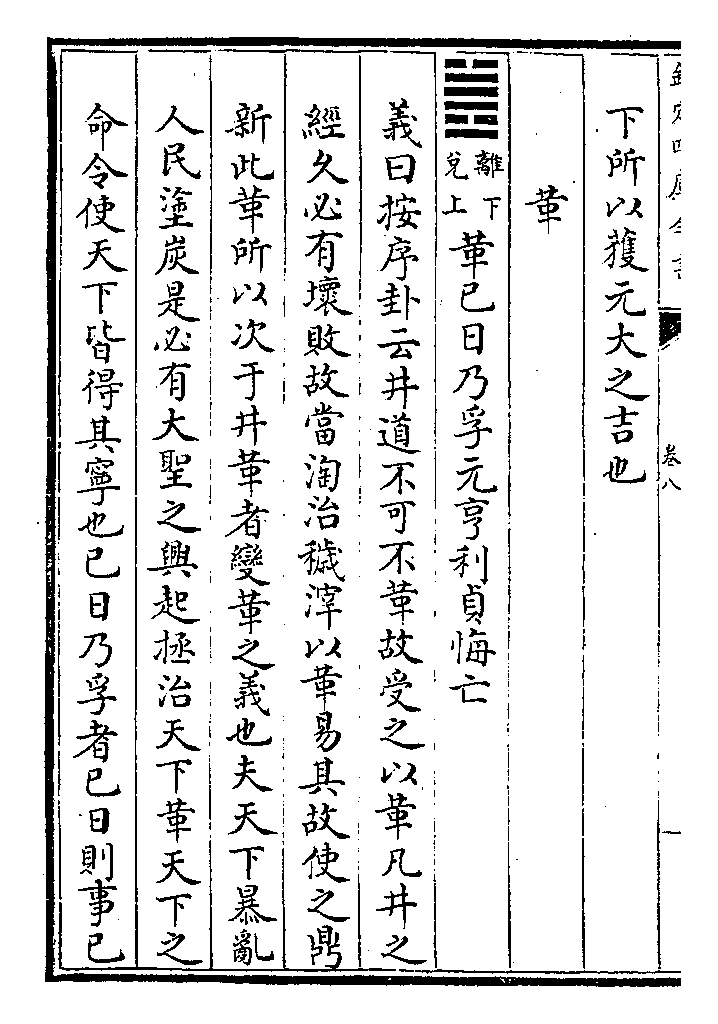 欽定四庫全書
卷八
一
下所以獲元大之吉也
革
離下
兌上
革已日乃孚元亨利貞悔亡
義曰按序卦云井道不可不革故受之以革凡井之
經久必有壞敗故當淘治穢滓以革易其故使之鼎
新此革所以次于井革者變革之義也夫天下暴亂
人民塗炭是必有大聖之興起拯治天下革天下之
命令使天下皆得其寧也已日乃孚者已日則事已